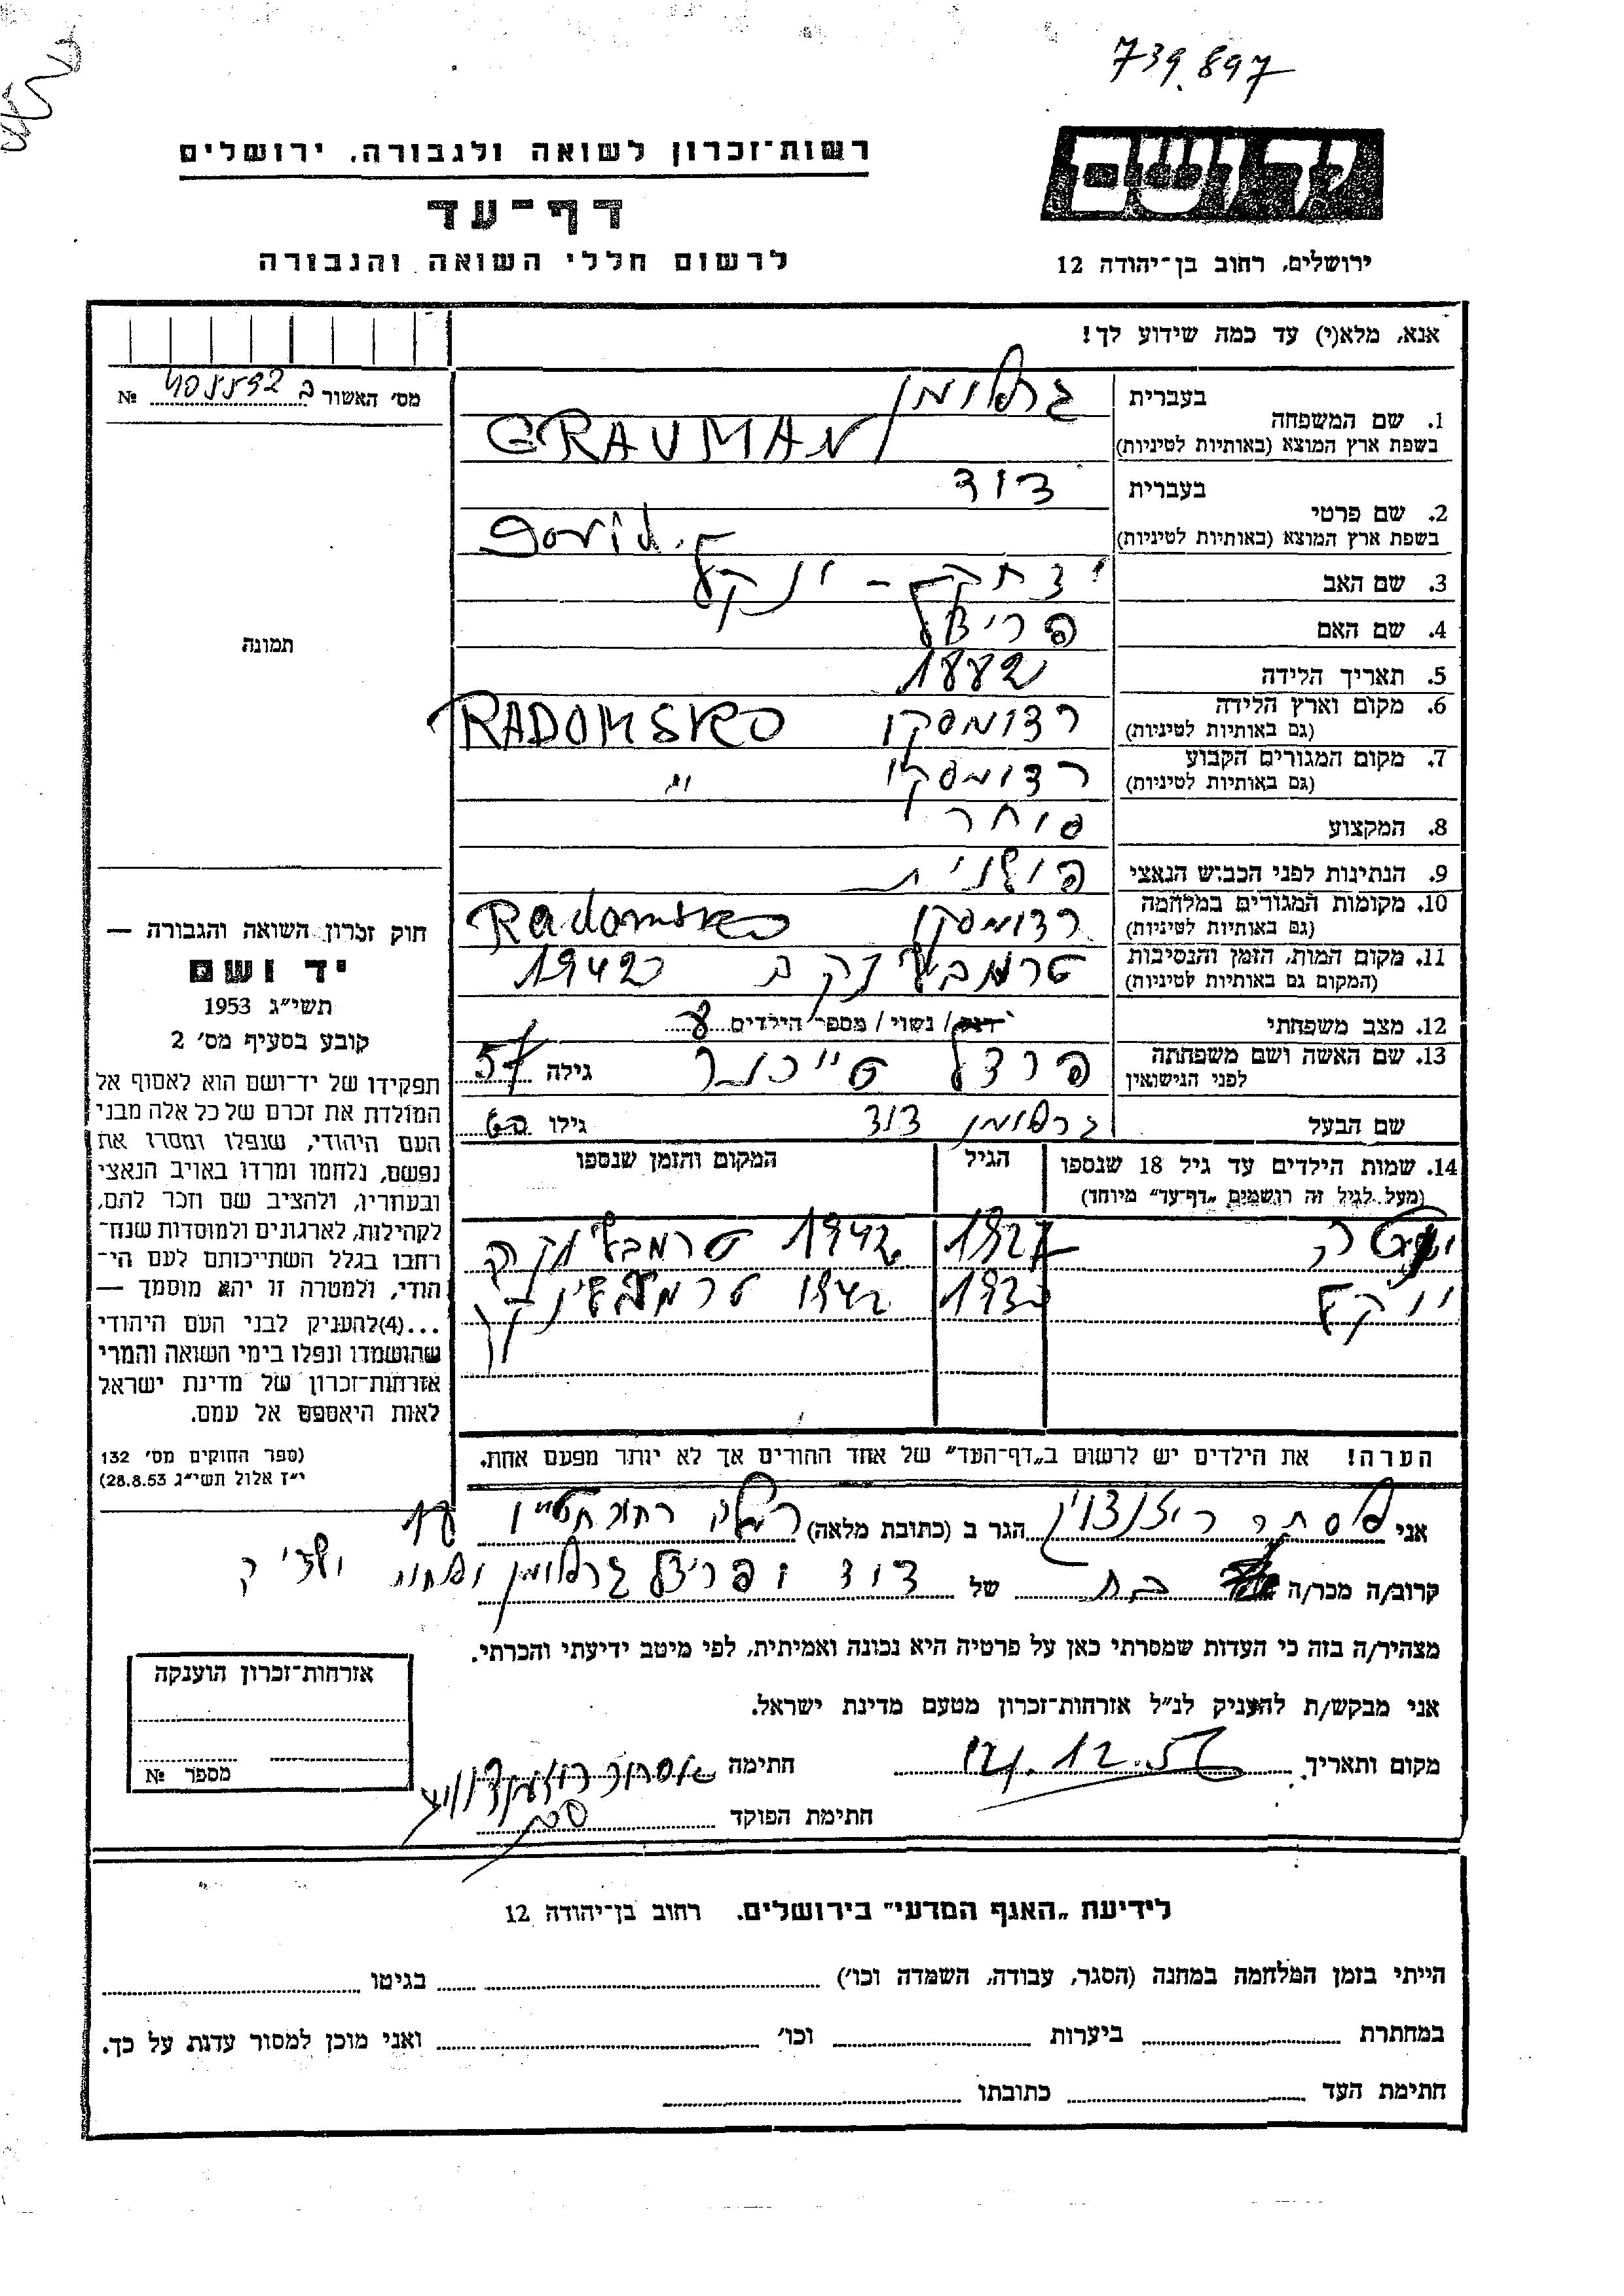 739.897
רשות־זכרון לשואה ולגבורה, ירושלים
דף־עד
לרשום חללי השואה והגבורה
יד ושם
ירושלים, רחוב בן־יהודה 12
אנא, מלא(י) עד כמה שידוע לך!
מס' האשור № ב
1. שם המשפחה
בעברית גראומן
בשפת ארץ המוצא (באותיות לטיניות) GRAUMAN
2. שם פרטי
בעברית דוד
בשפת ארץ המוצא (באותיות לטיניות)
3. שם האב יצחק - ינקל
4. שם האם
5. תאריך הלידה 1882
6. מקום וארץ הלידה
(גם באותיות לטיניות) רדומסקו RADOMSKO
7. מקום המגורים הקבוע
(גם באותיות לטיניות) רדומסקו
8. המקצוע סוחר
9. הנתינות לפני הכבוש הנאצי פולנית
10. מקומות המגורים במלחמה
(גם באותיות לטיניות) רדומסקו Radomsko
11. מקום המות, הזמן והנסיבות
(המקום גם באותיות לטיניות) ב 1942
12. מצב משפחתי רוק / נשוי / מספר הילדים 8
13. שם האשה ושם משפחתה
לפני הנישואין גילה 57
שם הבעל גראומן דוד גילו
14. שמות הילדים עד גיל 18 שנספו
(מעל לגיל זה רושמים „דף־עד" מיוחד)
הגיל
המקום והזמן שנספו
1927 1942
1930 1942
הערה! את הילדים יש לרשום ב„דף־העד" של אחד ההורים אך לא יותר מפעם אחת.
תמונה
חוק זכרון השואה והגבורה —
יד ושם
תשי״ג 1953
קובע בסעיף מס' 2
תפקידו של יד־ושם הוא לאסוף אל
המולדת את זכרם של כל אלה מבני
העם היהודי, שנפלו ומסרו את
נפשם, נלחמו ומרדו באויב הנאצי
ובעוזריו, ולהציב שם וזכר להם,
לקהילות, לארגונים ולמוסדות שנח־
רחבו בגלל השתייכותם לעם הי־
הודי, ולמטרה זו יהא מוסמך —
...(4)להעניק לבני העם היהודי
שהושמדו ונפלו בימי השואה והמרי
אזרחות־זכרון של מדינת ישראל
לאות היאספם אל עמם.
(ספר החוקים מס' 132
י״ז אלול תשי״ג 28.8.53)
אני אסתר הגר ב (כתובת מלאה) רמלה רחוב
קרוב/ה מכר/ה בת של דוד ו גראומן
מצהיר/ה בזה כי העדות שמסרתי כאן על פרטיה היא נכונה ואמיתית, לפי מיטב ידיעתי והכרתי.
אני מבקש/ת להעניק לנ״ל אזרחות־זכרון מטעם מדינת ישראל.
מקום ותאריך 12.56 חתימה
חתימת הפוקד
אזרחות־זכרון הוענקה
מספר №
לידיעת „האגף המדעי" בירושלים. רחוב בן־יהודה 12
הייתי בזמן המלחמה במחנה (הסגר, עבודה, השמדה וכו') בגיטו
במחתרת ביערות וכו' ואני מוכן למסור עדות על כך.
חתימת העד כתובתו